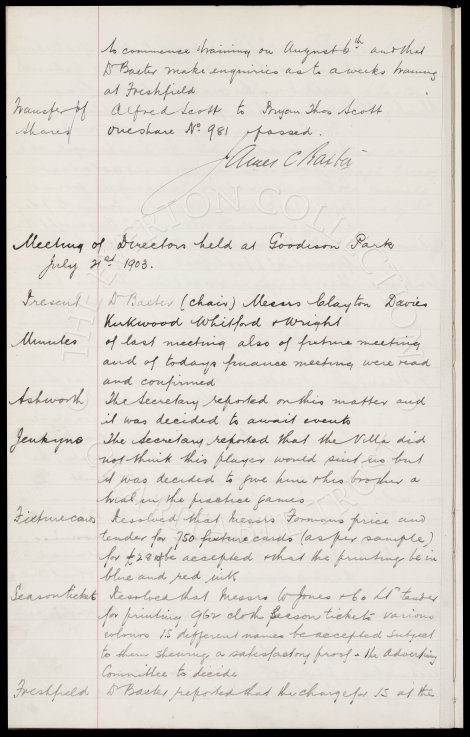 to commence training on August 6th and that
Dr Baxter make enquiries as to a weeks training
at Freshfield
Transfer of Alfred Scott to Bryan Thos Scott
Shares one share No 981 passed.
James C Baxter
Meeting of Directors held at Goodison Park
July 21st 1903.
Present Dr Baxter (chair) Messrs Clayton Davies
Kirkwood Whitford & Wright
Minutes of last meeting also of fixture meeting
and of todays finance meeting were read
and confirmed
Ashworth The Secretary reported on this matter and
it was decided to await events
Jenkyns The Secretary reported that the Villa did
not think this player would suit us but
it was decided to give him & his brother a
trial in the practice games
Fixture cards Resolved that Messrs price and
tender for 750 fixture cards (as per sample)
for be accepted & that the printing be in
blue and red ink
Season tickets Resolved that Messrs W Jones & Co Ld tender
for printing 962 cloth Season tickets various
colours 15 different names be accepted subject
to them shewing a satisfactory proof - the Advertising
Committee to decide
Freshfield Dr Baxter reported that the charge for 15 at the
THE EVERTON COLLECTION